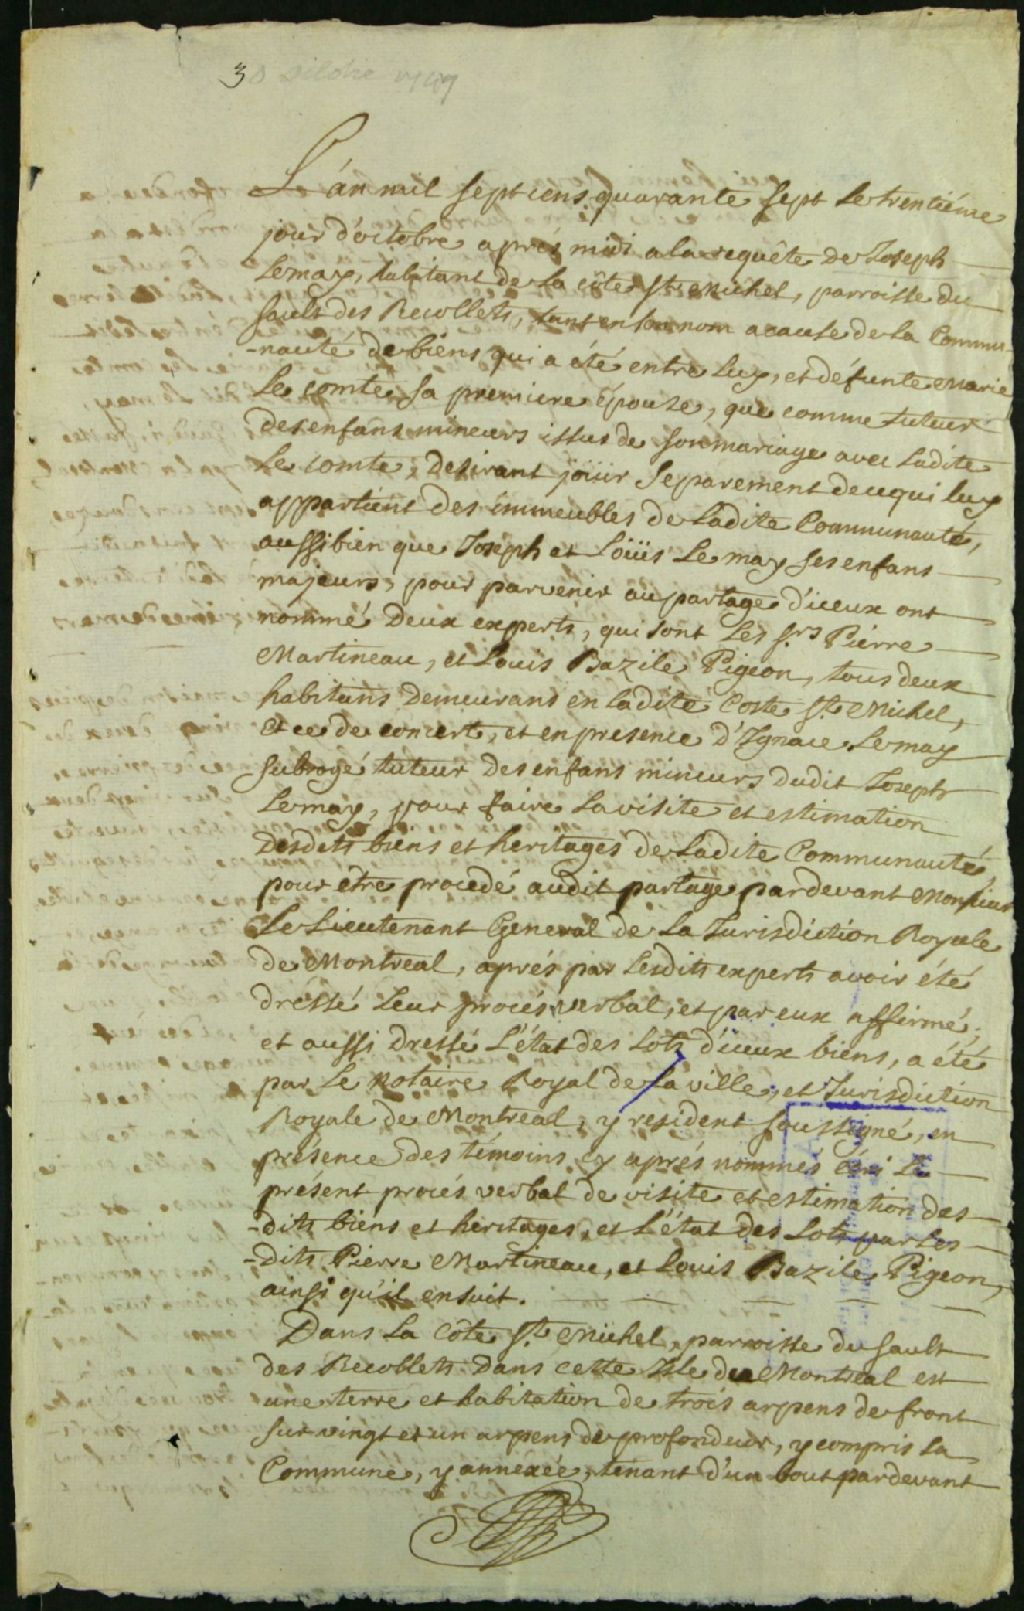 30 8bre 1747
L'an mil sept cens quarante sept le trentiéme
jour d'octobre aprés midi a la requête de Joseph
Lemay, habitant de la côte St. Michel, parroisse du
Sault des Recollets, tant en son nom acause de la Commu-
-nauté de biens qui a été entre luy, et défunte Marie
Le comte sa premiere épouse, que comme tuteur
des enfans mineurs issus de son mariage avec ladite
Le comte, desirant joüir separement de ce qui luy
appartient des immeubles de ladite Communauté,
aussi bien que Joseph et Loüis Lemay ses enfans
majeurs, pour parvenir au partage d'iceux ont
nommé deux experts, qui sont les Srs. Pierre
Martineau, et Louis Bazile Pigeon, tous deux
habitans demeurans en ladite Coste St. Michel,
et ce de concert, et en presence d'Ignace Lemay
subrogé tuteur des enfans mineurs dudit Joseph
Lemay, pour faire la visite et estimation
desdits biens et heritages de ladite Communauté,
pour être procedé audit partage pardevant Monsieur
Le Lieutenant General de la Jurisdiction Royale
de Montreal, aprés par lesdits experts avoir été
dressé leur procés verbal, et par eux affirmé,
et aussi dressé l'état des lots d'iceux biens, a été
par le notaire Royal de la ville, et Jurisdiction
Royale de Montreal, y resident soussigné, en
présence des témoins cy apres nommés écri le
présent procés verbal de visite et estimation des-
-dits biens et heritages, et l'état des Lots par les-
-dits Pierre Martineau, et Louis Bazile Pigeon,
ainsi qu'il ensuit.
Dans la Côte St. Michel, parroisse du Sault
des Recollets dans cette Isle de Montreal est
une terre et habitation de trois arpens de front
sur vingt et un arpens de profondeur, y compris la
Commune, y annexée, tenant d'un bout pardevant